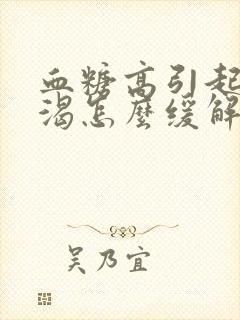 血糖高引起
渴怎麼缓解
吴乃宜